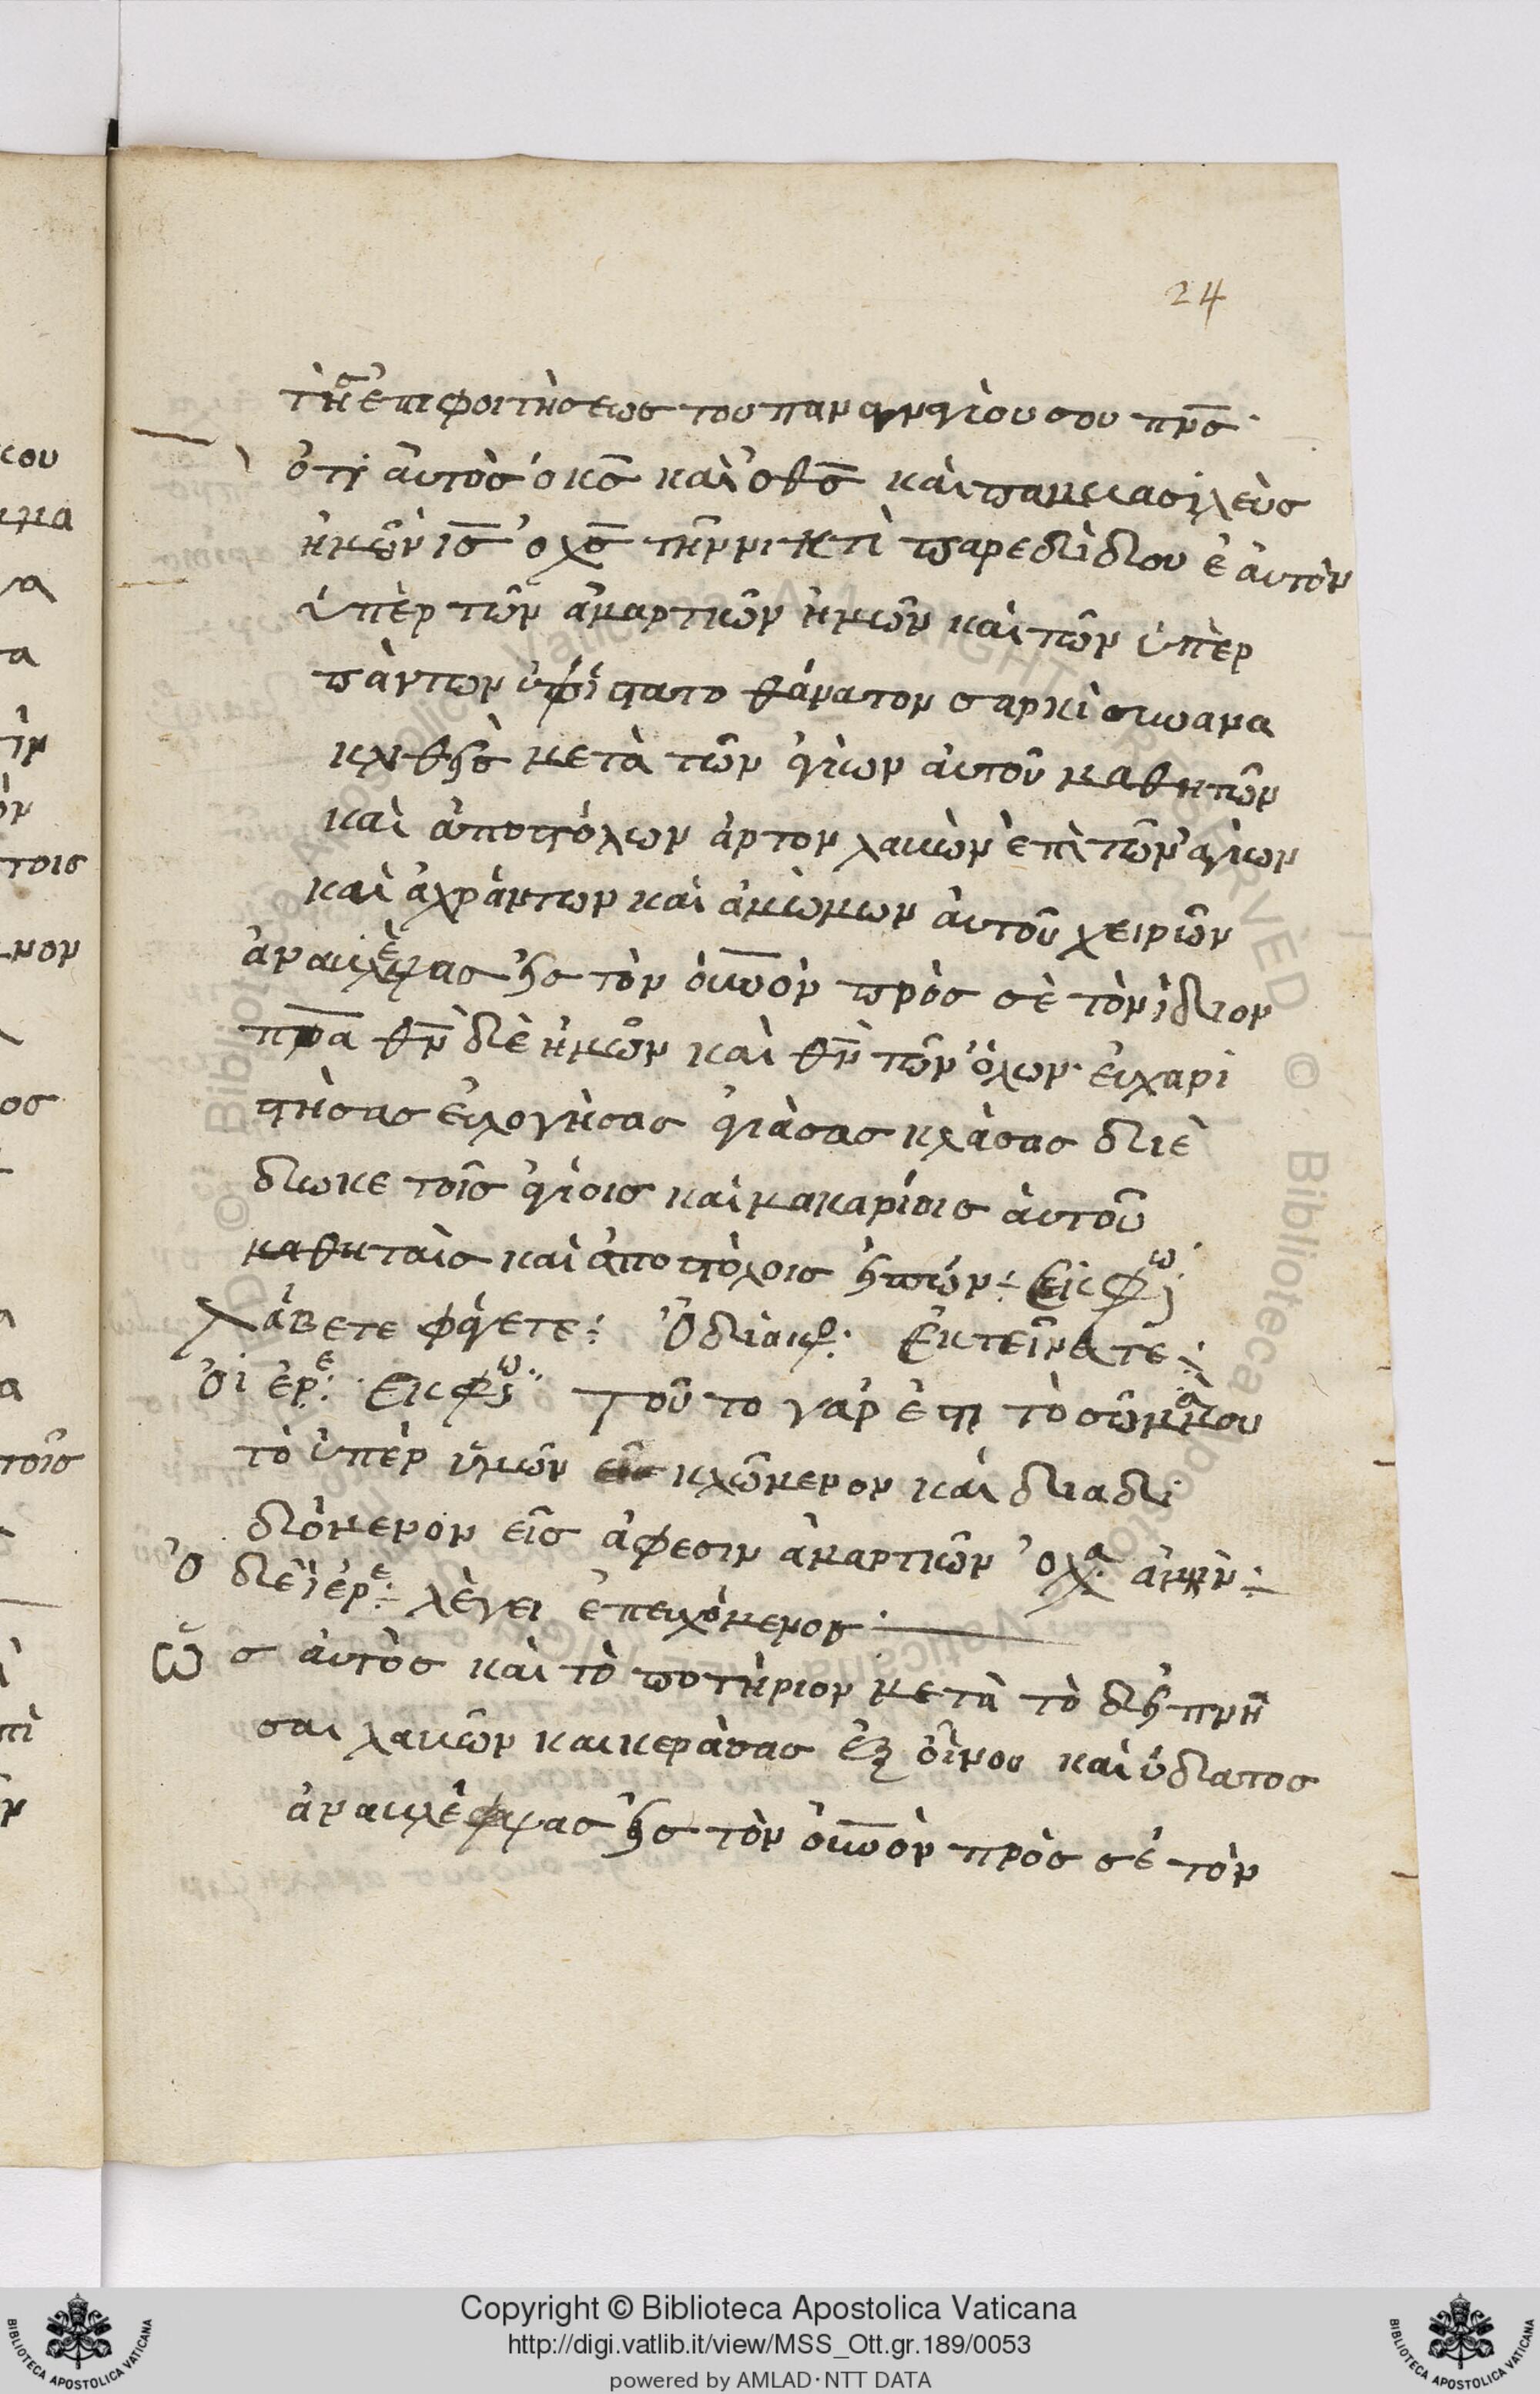 24
τῆς ἐπιφοιτήσεως του παναγίου σου πνς·
ὅτι αὐτὸς ὁ κς καὶ ὁ θς καὶ παμβασιλεὺς
ἡμῶν ις ὁ χς τῆ νυκτὶ παρεδίδου ἑαυτὸν
ὑπὲρ τῶν ἁμαρτιῶν ἡμῶν καὶ τῶν ὑπὲρ
πάντων ὑφίστατο θάνατον σαρκὶ συνανα
κλιθεὶς μετὰ τῶν ἁγίων αὐτοῦ μαθητῶν
καὶ ἀποστόλων ἄρτον λαβὼν ἐπὶ τῶν ἁγίων
καὶ ἀχράντων καὶ ἀμώμων αὐτοῦ χειρῶν
ἀναβλέψας εἰς τὸν οὐνον πρὸς σὲ τὸν ἴδιον
πρα θν δὲ ἡμῶν καὶ θν τῶν ὅλων· εὐχαρι
στήσας εὐλογήσας ἁγιάσας κλάσας διέ
δωκε τοῖς ἁγίοις καὶ μακαρίοις αὐτοῦ
μαθηταῖς καὶ ἀποστόλοις εἰπών:- ἐκφω
Λάβετε φάγετε: Ὁ διακ: Ἐκτείνατε:
ὁ ἱερε: Ἐκφω: Τοῦτο γάρ ἐστι τὸ σῶμα μου
τὸ ὑπὲρ ὑμῶν κλώμενον καὶ διαδι
δόμενον εἰς ἄφεσιν ἁμαρτιῶν ὁ λα ἀμήν:-
Ὁ δὲ ἱερε: λέγει ἐπευχόμενος:
Ὡς αὐτὸς καὶ τὸ ποτήριον μετὰ τὸ δειπνῆ
σαι λαβὼν και κεράσας ἐξ οἴνου καὶ ὕδατος
ἀναβλέψας εἰς τὸν οὐνον πρὸς σὲ τὸν
Copyright © Biblioteca Apostolica Vaticana
http://digi.vatlib.it/view/MSS_Ott.gr.189/0053
powered by AMLAD·NTT DATA